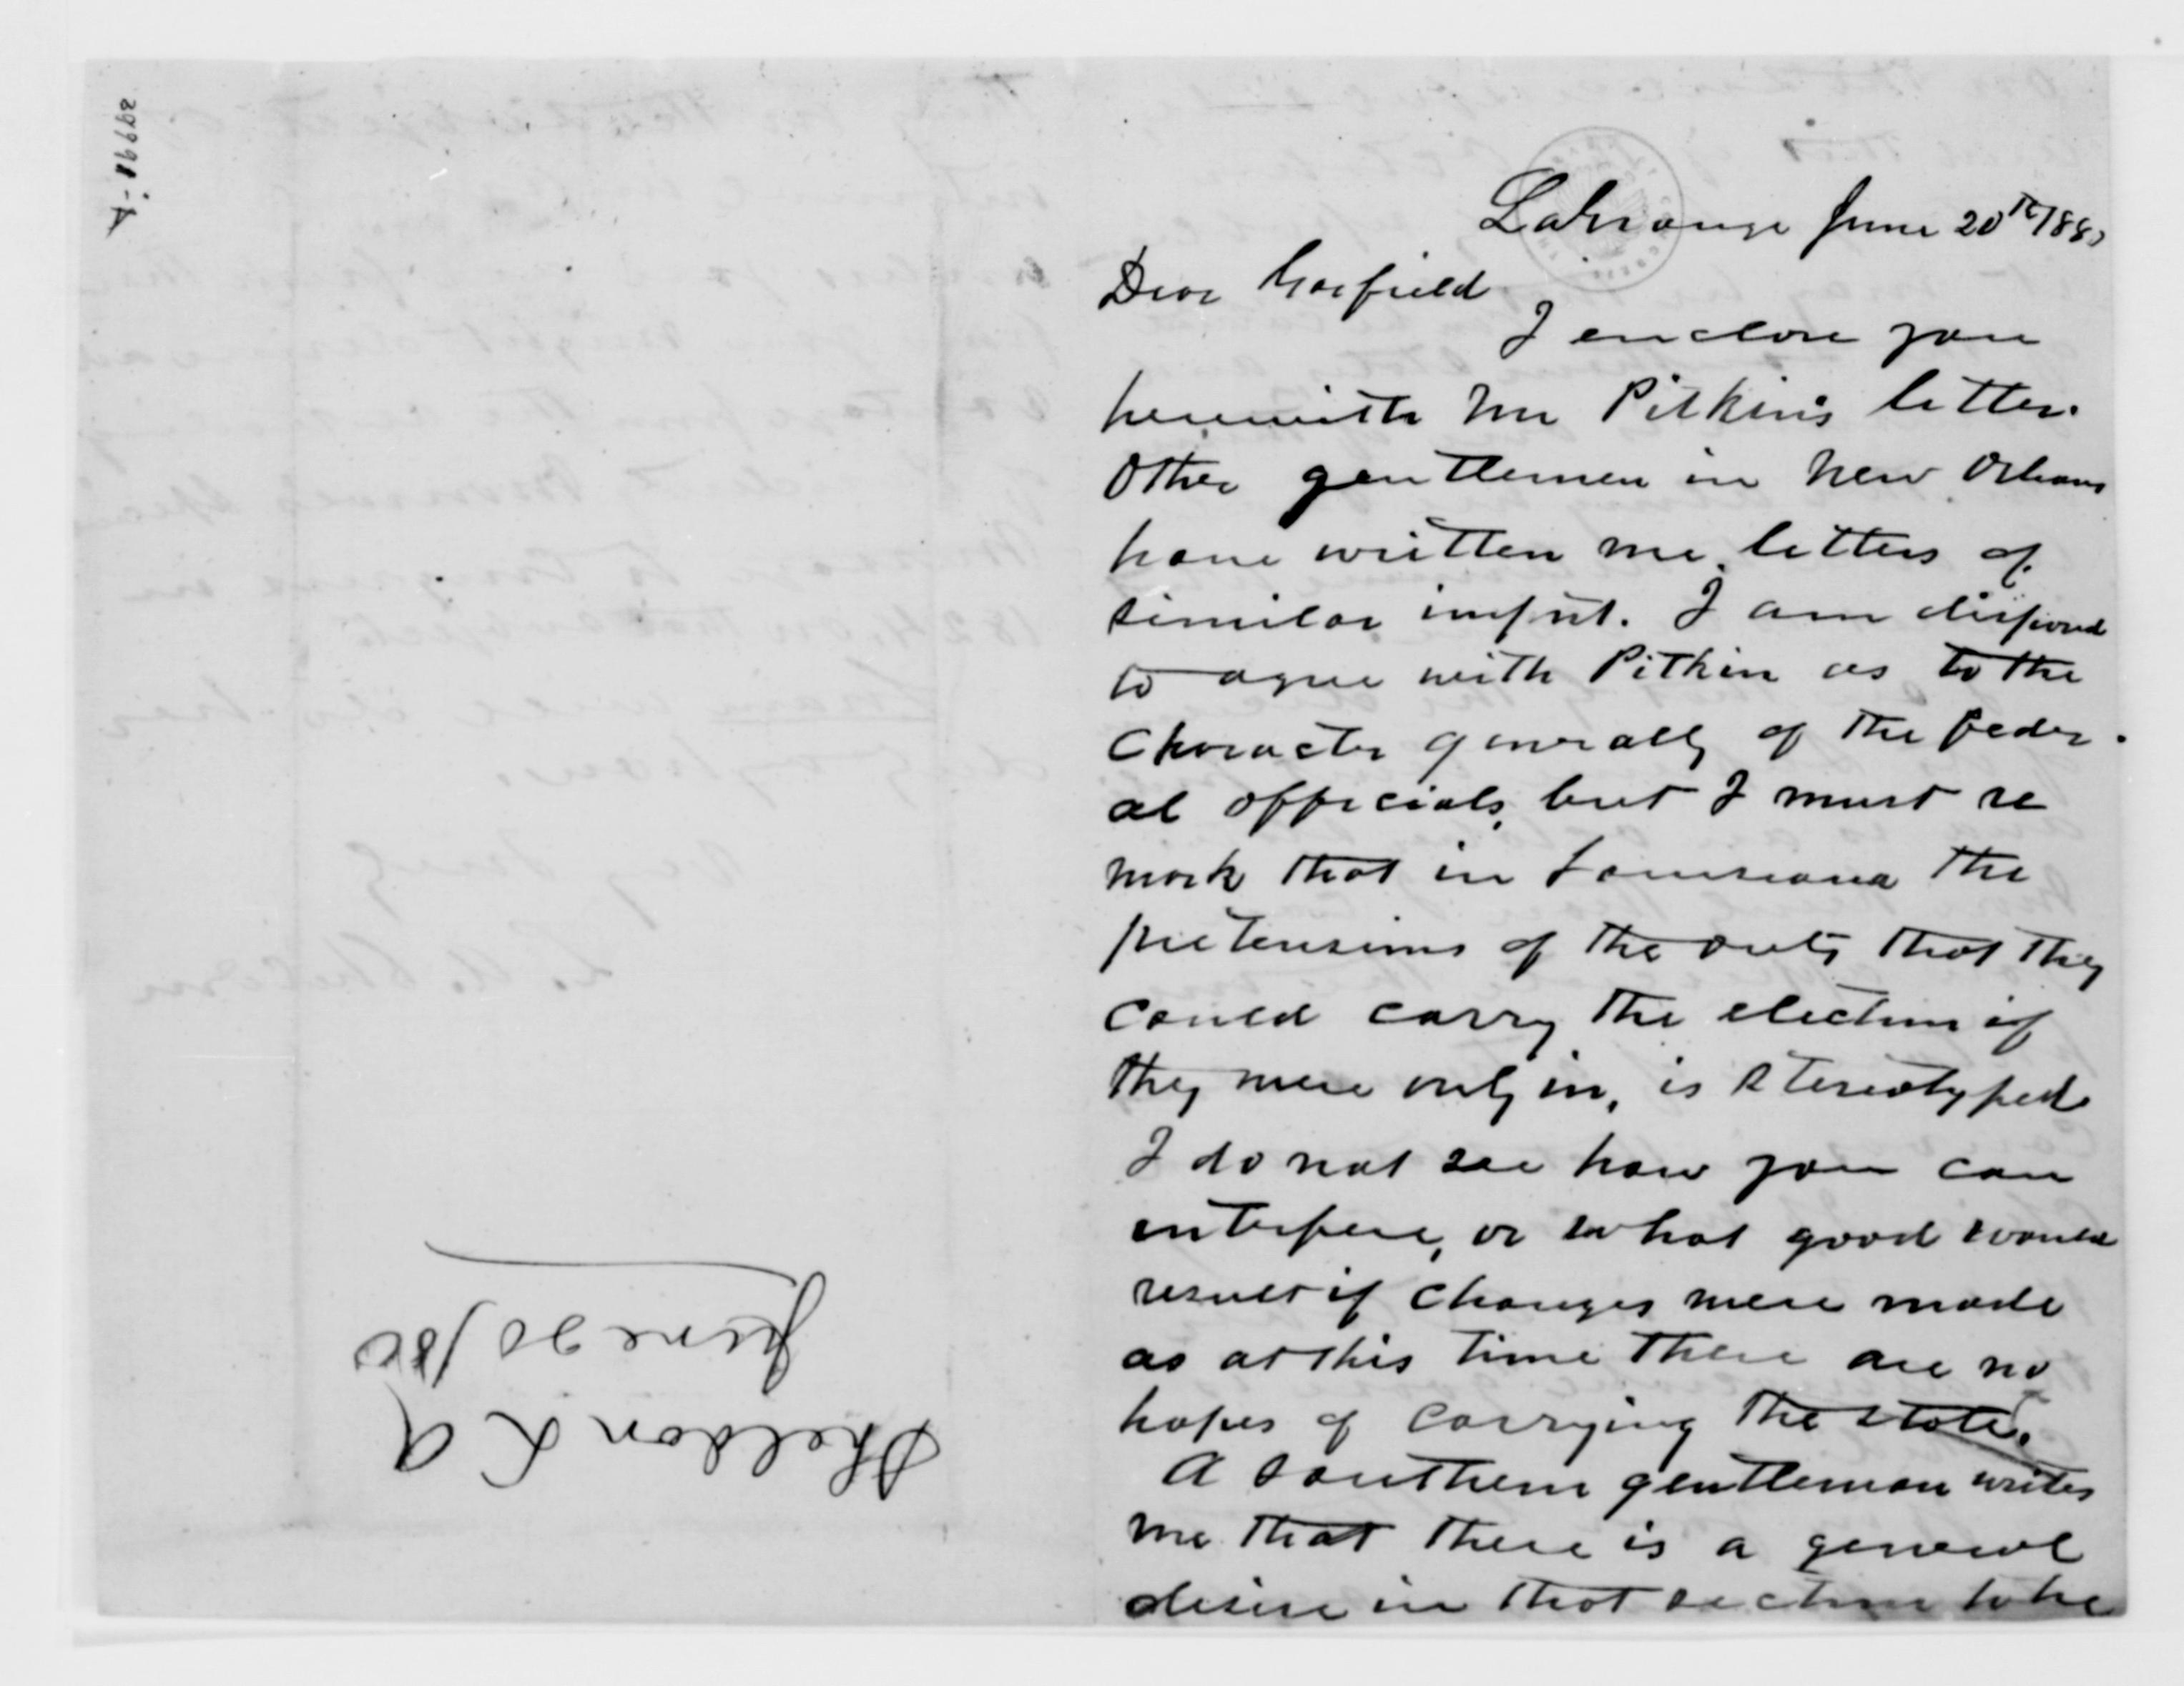 LaGrange June 20th 1880
Dear Garfield
I enclose you
herewith Mr Pitkin's letter.
Other gentlemen in New Orleans
have written me letters of
similar import. I am disposed
to agree with Pitkin as to the
character generally of the Feder-
al officials, but I must re
mark that in Louisiana the
pretensions of the outs that they
could carry the election if
they were only in, is stereotyped
I do not see how you can
interfere, or what good would
result if changes were made
as at this time there are no
hopes of carrying the state.
A Southern gentleman writes
me that there is a general
desire in that section to be
Sheldon L A
June 20/80